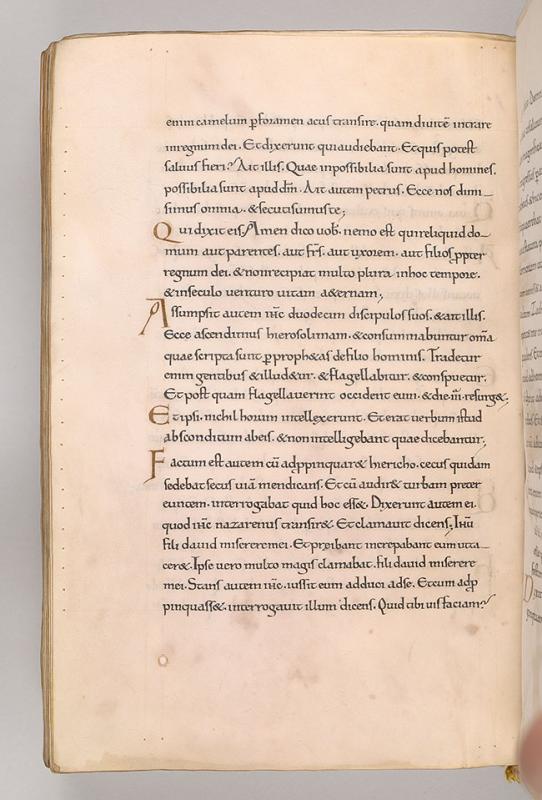 enim camelum p foramen acus transire. quam diuitē intrare
inregnum dei. Et dixerunt qui audiebant. Et quis potest
saluus fieri? Ait illis. Quae inpossibilia sunt apud homines.
possibilia sunt apud dm̄. Ait autem petrus. Ecce nos dimi
simus omnia. & secuti sumus te;
Qui dixit eis. Amen dico uob̄. nemo est qui reliquid do
mum aut parentes. aut fr̄s. aut uxorem. aut filios ppter
regnum dei. & non recipiat multo plura in hoc tempore.
& in seculo uenturo uitam aeternam;
Assumpsit autem ih̄c duodecim discipulos suos. & ait illis.
Ecce ascendimus hierosolimam. & consummabuntur om̄a
quae scripta sunt p proph&as de filio hominis. Trad&ur
enim gentibus & illud&ur. & flagellabitur. & conspu&ur.
Et post quam flagellauerint occident eum. & die .iii. resurg&;
Et ipsi nichil horum intellexerunt. Et erat uerbum istud
absconditum ab eis. & non intelligebant quae dicebantur;
Factum est autem cū adppinquar& hiericho. cecus quidam
sedebat secus uiā mendicans. Et cū audir& turbam preter
euntem. interrogabat quid hoc ess&. Dixerunt autem ei.
quod ih̄c nazarenus transir&. Et clamauit dicens; Ih̄u
fili dauid miserere mei. Et preibant increpabant eum ut ta
cer&. Ipse uero multo magis clamabat. fili dauid miserere
mei. Stans autem ih̄c. iussit eum adduci ad se. Et cum adp
pinquass&. interrogauit illum dicens. Quid tibi uis faciam?